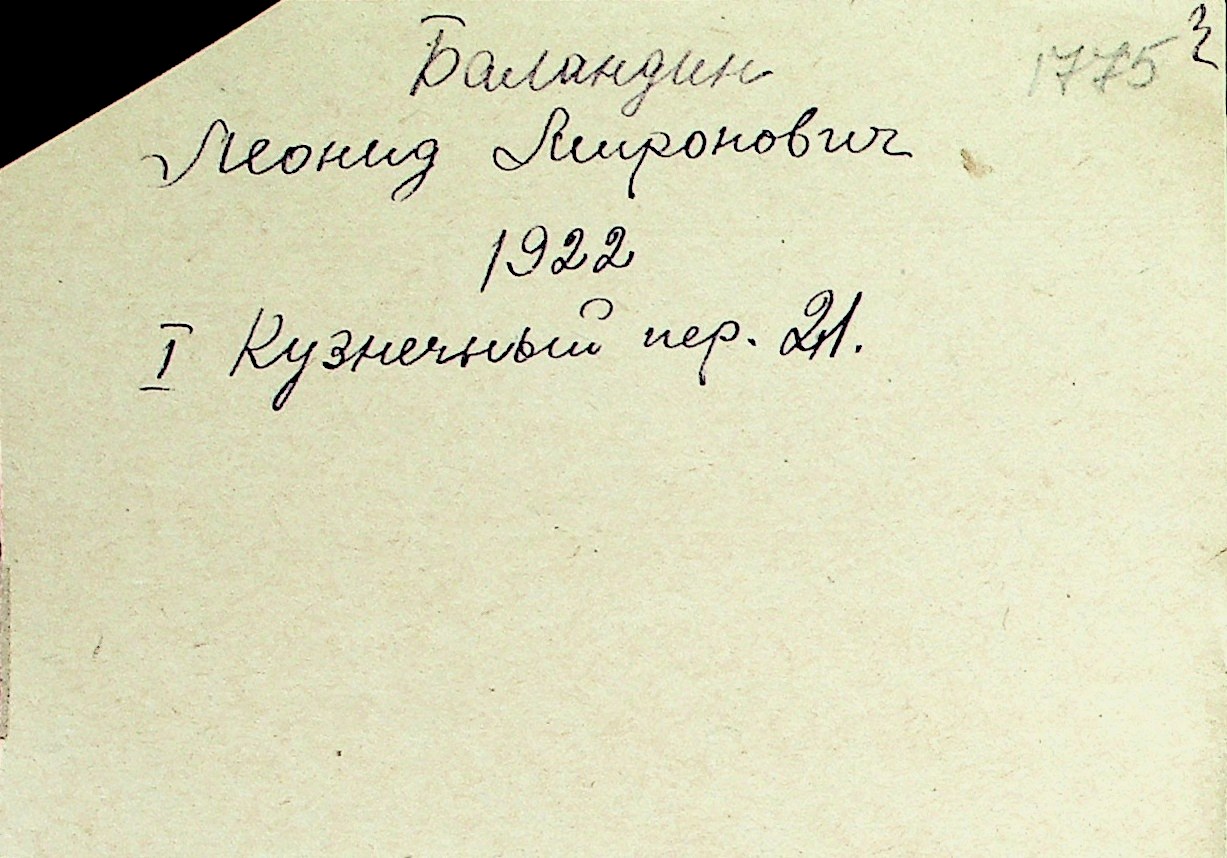 Баландин
1775
Леонид Миронович
1922
I Кузнечный пер. 21.